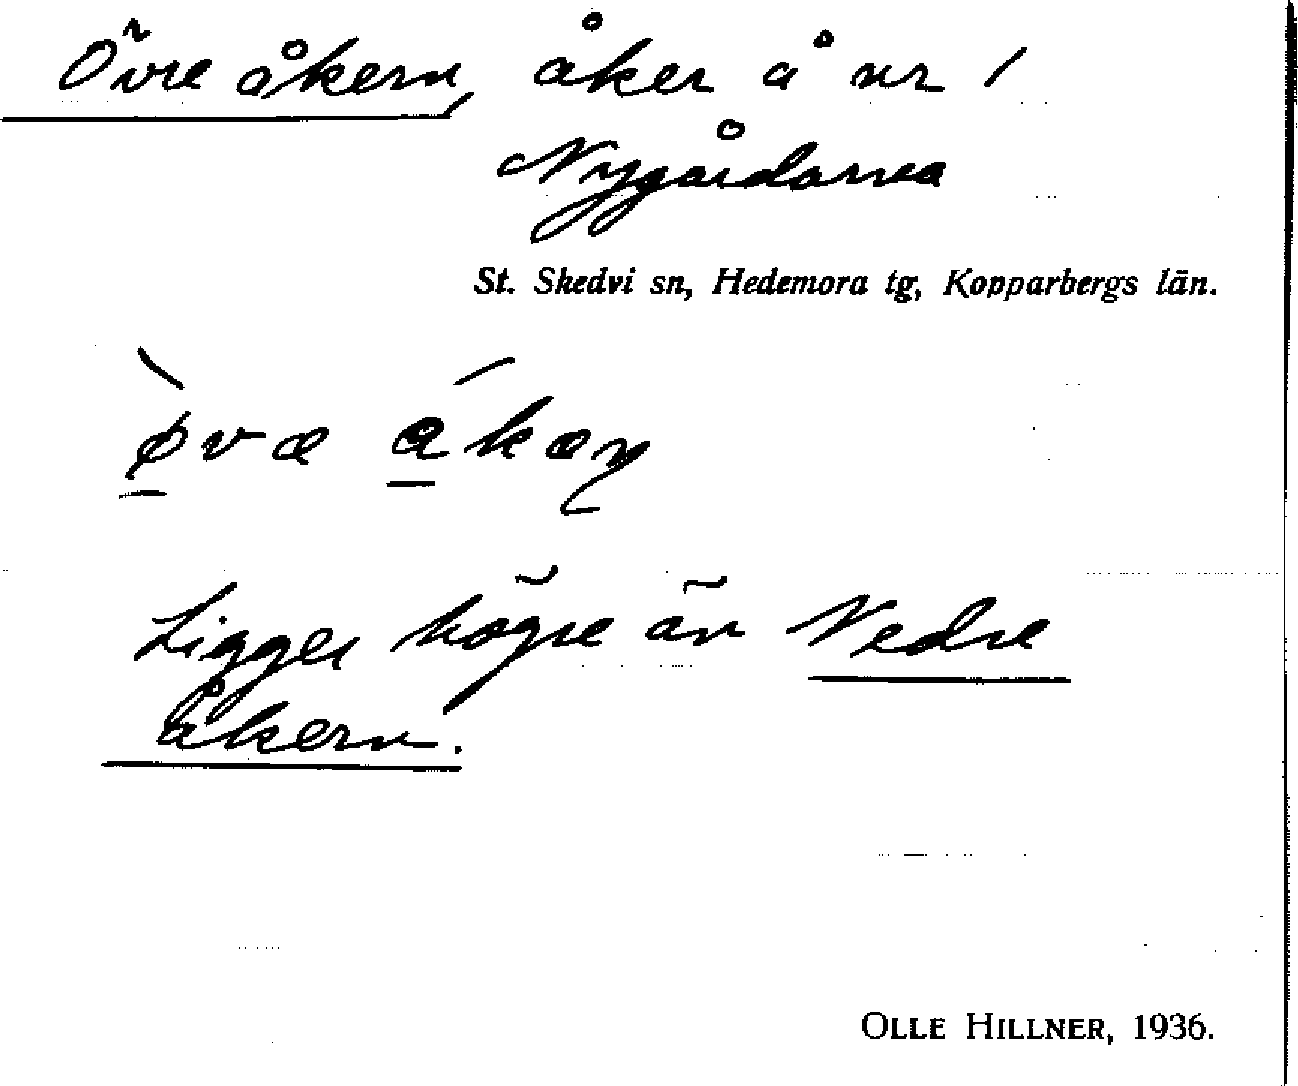 Övre åkern, åker å nr 1
Nygårdarna
St. Skedvi sn, Hedemora tg, Kopparbergs län.
Ligger högre än Nedre
åkern.
OLLE HILLNER, 1936.